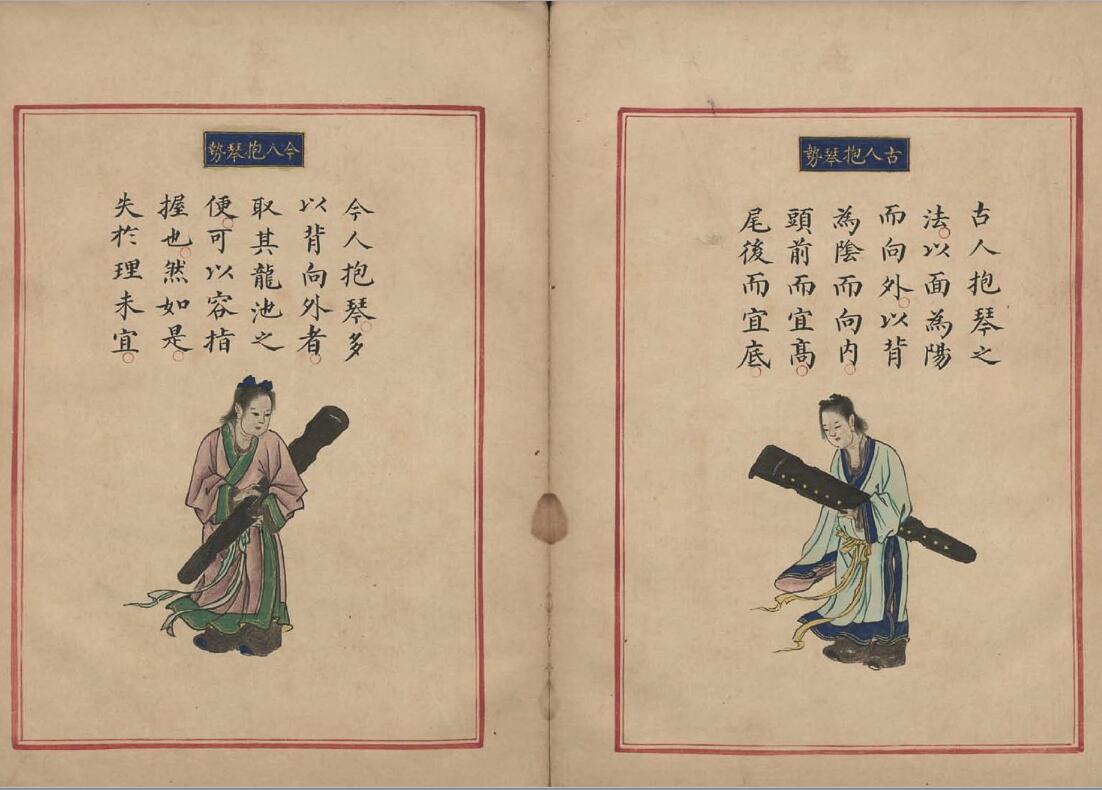 古人抱琴勢
古人抱琴之
法。以面為陽
而向外。以背
為陰而向内。
頭前而宜髙。
尾後而宜底。
今人抱琴勢
今人抱琴。多
以背向外者。
取其龍池之
便。可以容指
握也。然如是。
失於理未宜。